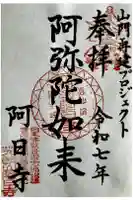 山門再建プロジェクト
奉拝
令和七年
阿弥陀如来
阿日寺